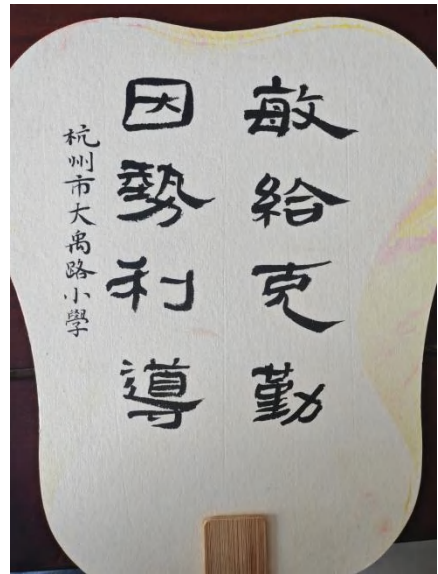 敏給克勤
因勢利導
杭州市大禹路小學